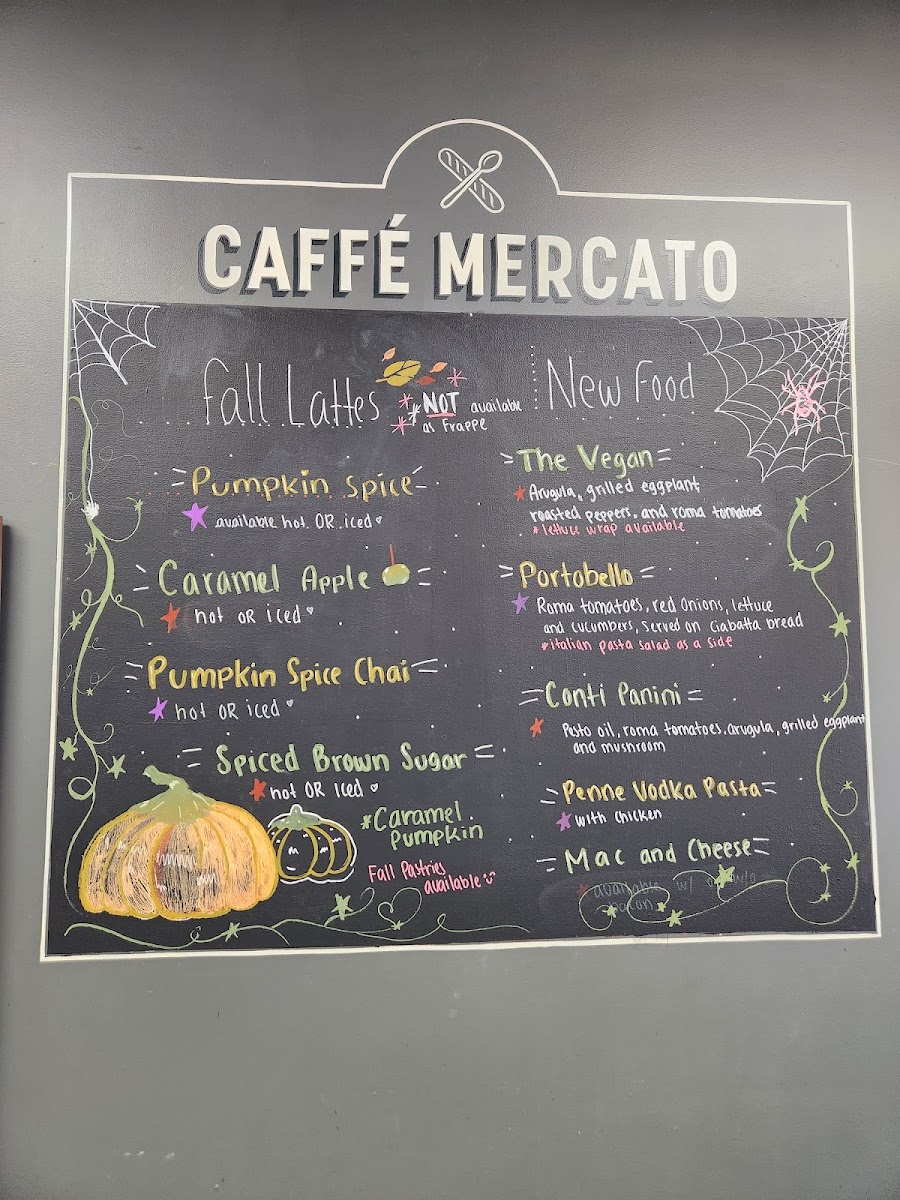 CAFFÉ MERCATO
Fall Lattes
NOT available
as Frappe
Pumpkin Spice
available hot OR iced
Caramel Apple
hot OR iced
Pumpkin Spice Chai
hot OR iced
Spiced Brown Sugar
hot OR Iced
*Caramel
Pumpkin
Fall Pastries
available
New Food
The Vegan
Arugula, grilled eggplant,
roasted peppers, and roma tomatoes
*lettuce wrap available
Portobello
Roma tomatoes, red onions, lettuce
and cucumbers, served on Ciabatta bread
*italian pasta salad as a side
Conti Panini
Pesto oil, roma tomatoes, arugula, grilled eggplant
and mushroom
Penne Vodka Pasta
with chicken
Mac and Cheese
available w/ or w/o
bacon